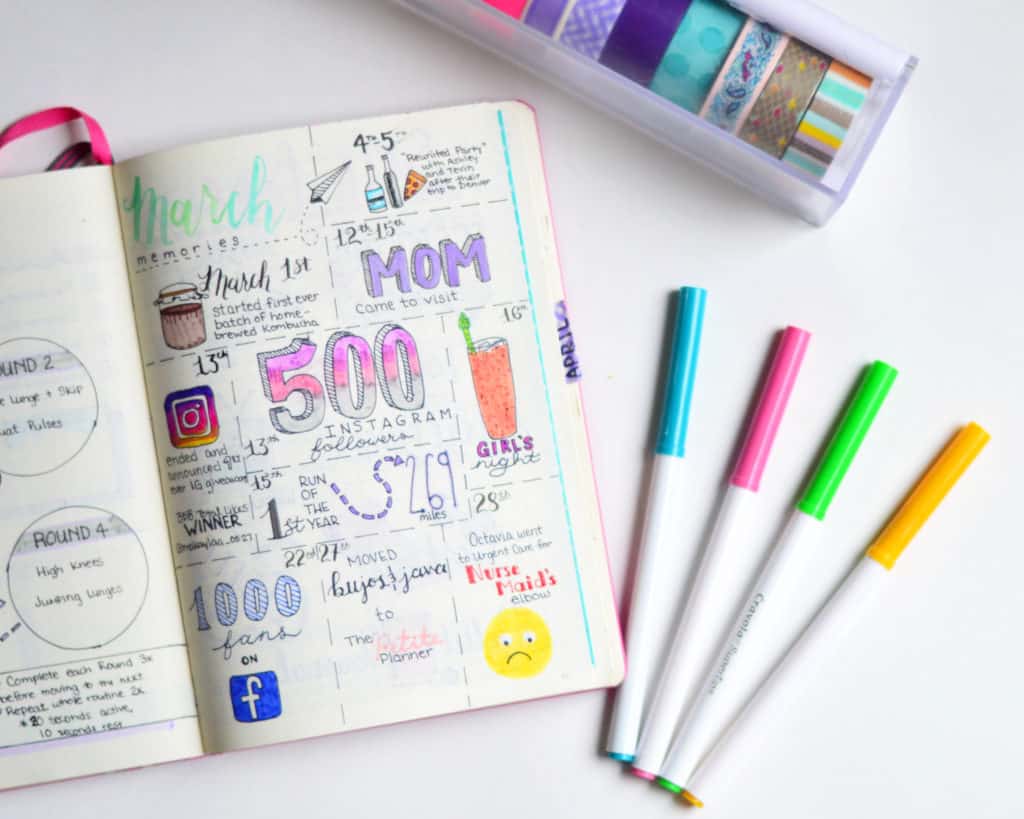 UND 2
Lunge + Skip
Pulses
ROUND 4
High Knees
Jumping Lunges
Complete each Round 3x
before moving to the next
Repeat whole routine 2x
*20 seconds active,
10 seconds rest
March
memories
4TH-5TH
"Reunited Party"
with Ashley
and Tevin
after their
trip to Denver
March 1st
started first ever
batch of home-
brewed Kombucha
12th-15th
MOM
came to visit
13th
ended and
announced
over IG giveaway
358 Total Likes
WINNER
13th
500
INSTAGRAM
followers
16th
GIRL'S
night
15th
1st
RUN
OF
THE
YEAR
2.69
miles
22nd/27th
1000
fans
ON
f
MOVED
bujos & java
to
The Petite
Planner
28th
Octavia went
to Urgent Care for
Nurse
Maid's
elbow
APRIL
Crayola SuperTips